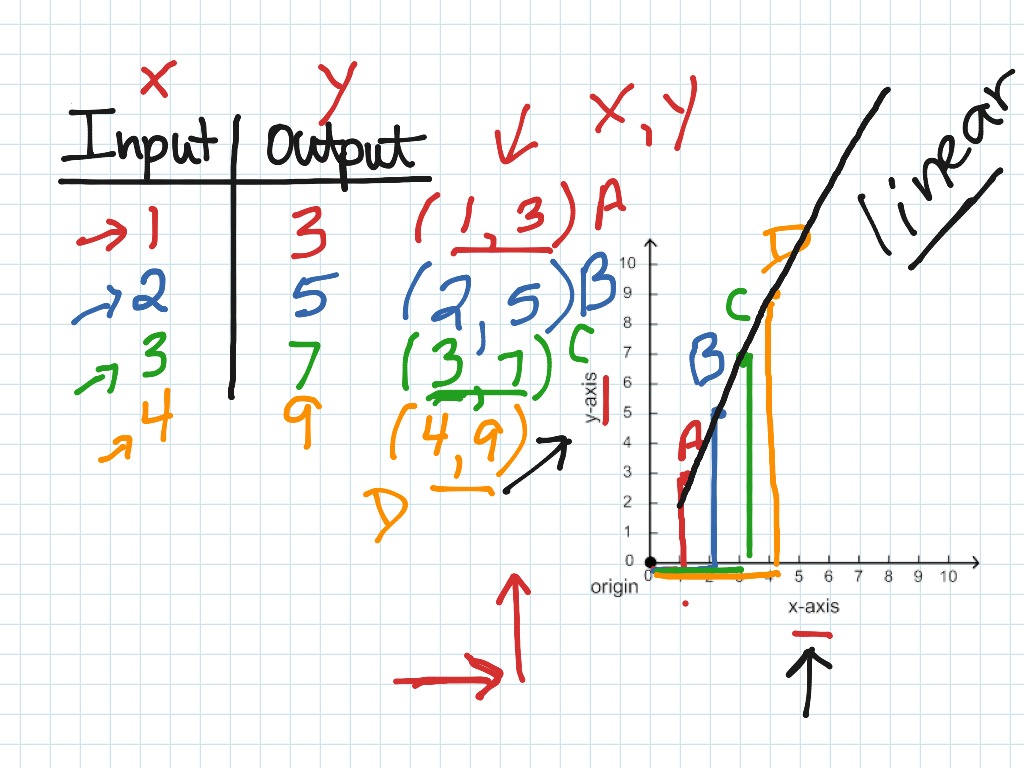 x y x, y
Input Output
1 3 (1, 3) A
2 5 (2, 5) B
3 7 (3, 7) C
4 9 (4, 9)
D
linear
y-axis
10
9
8
7
6
5
4
3
2
1
0
A
B
C
D
0 2 3 4 5 6 7 8 9 10
origin
x-axis